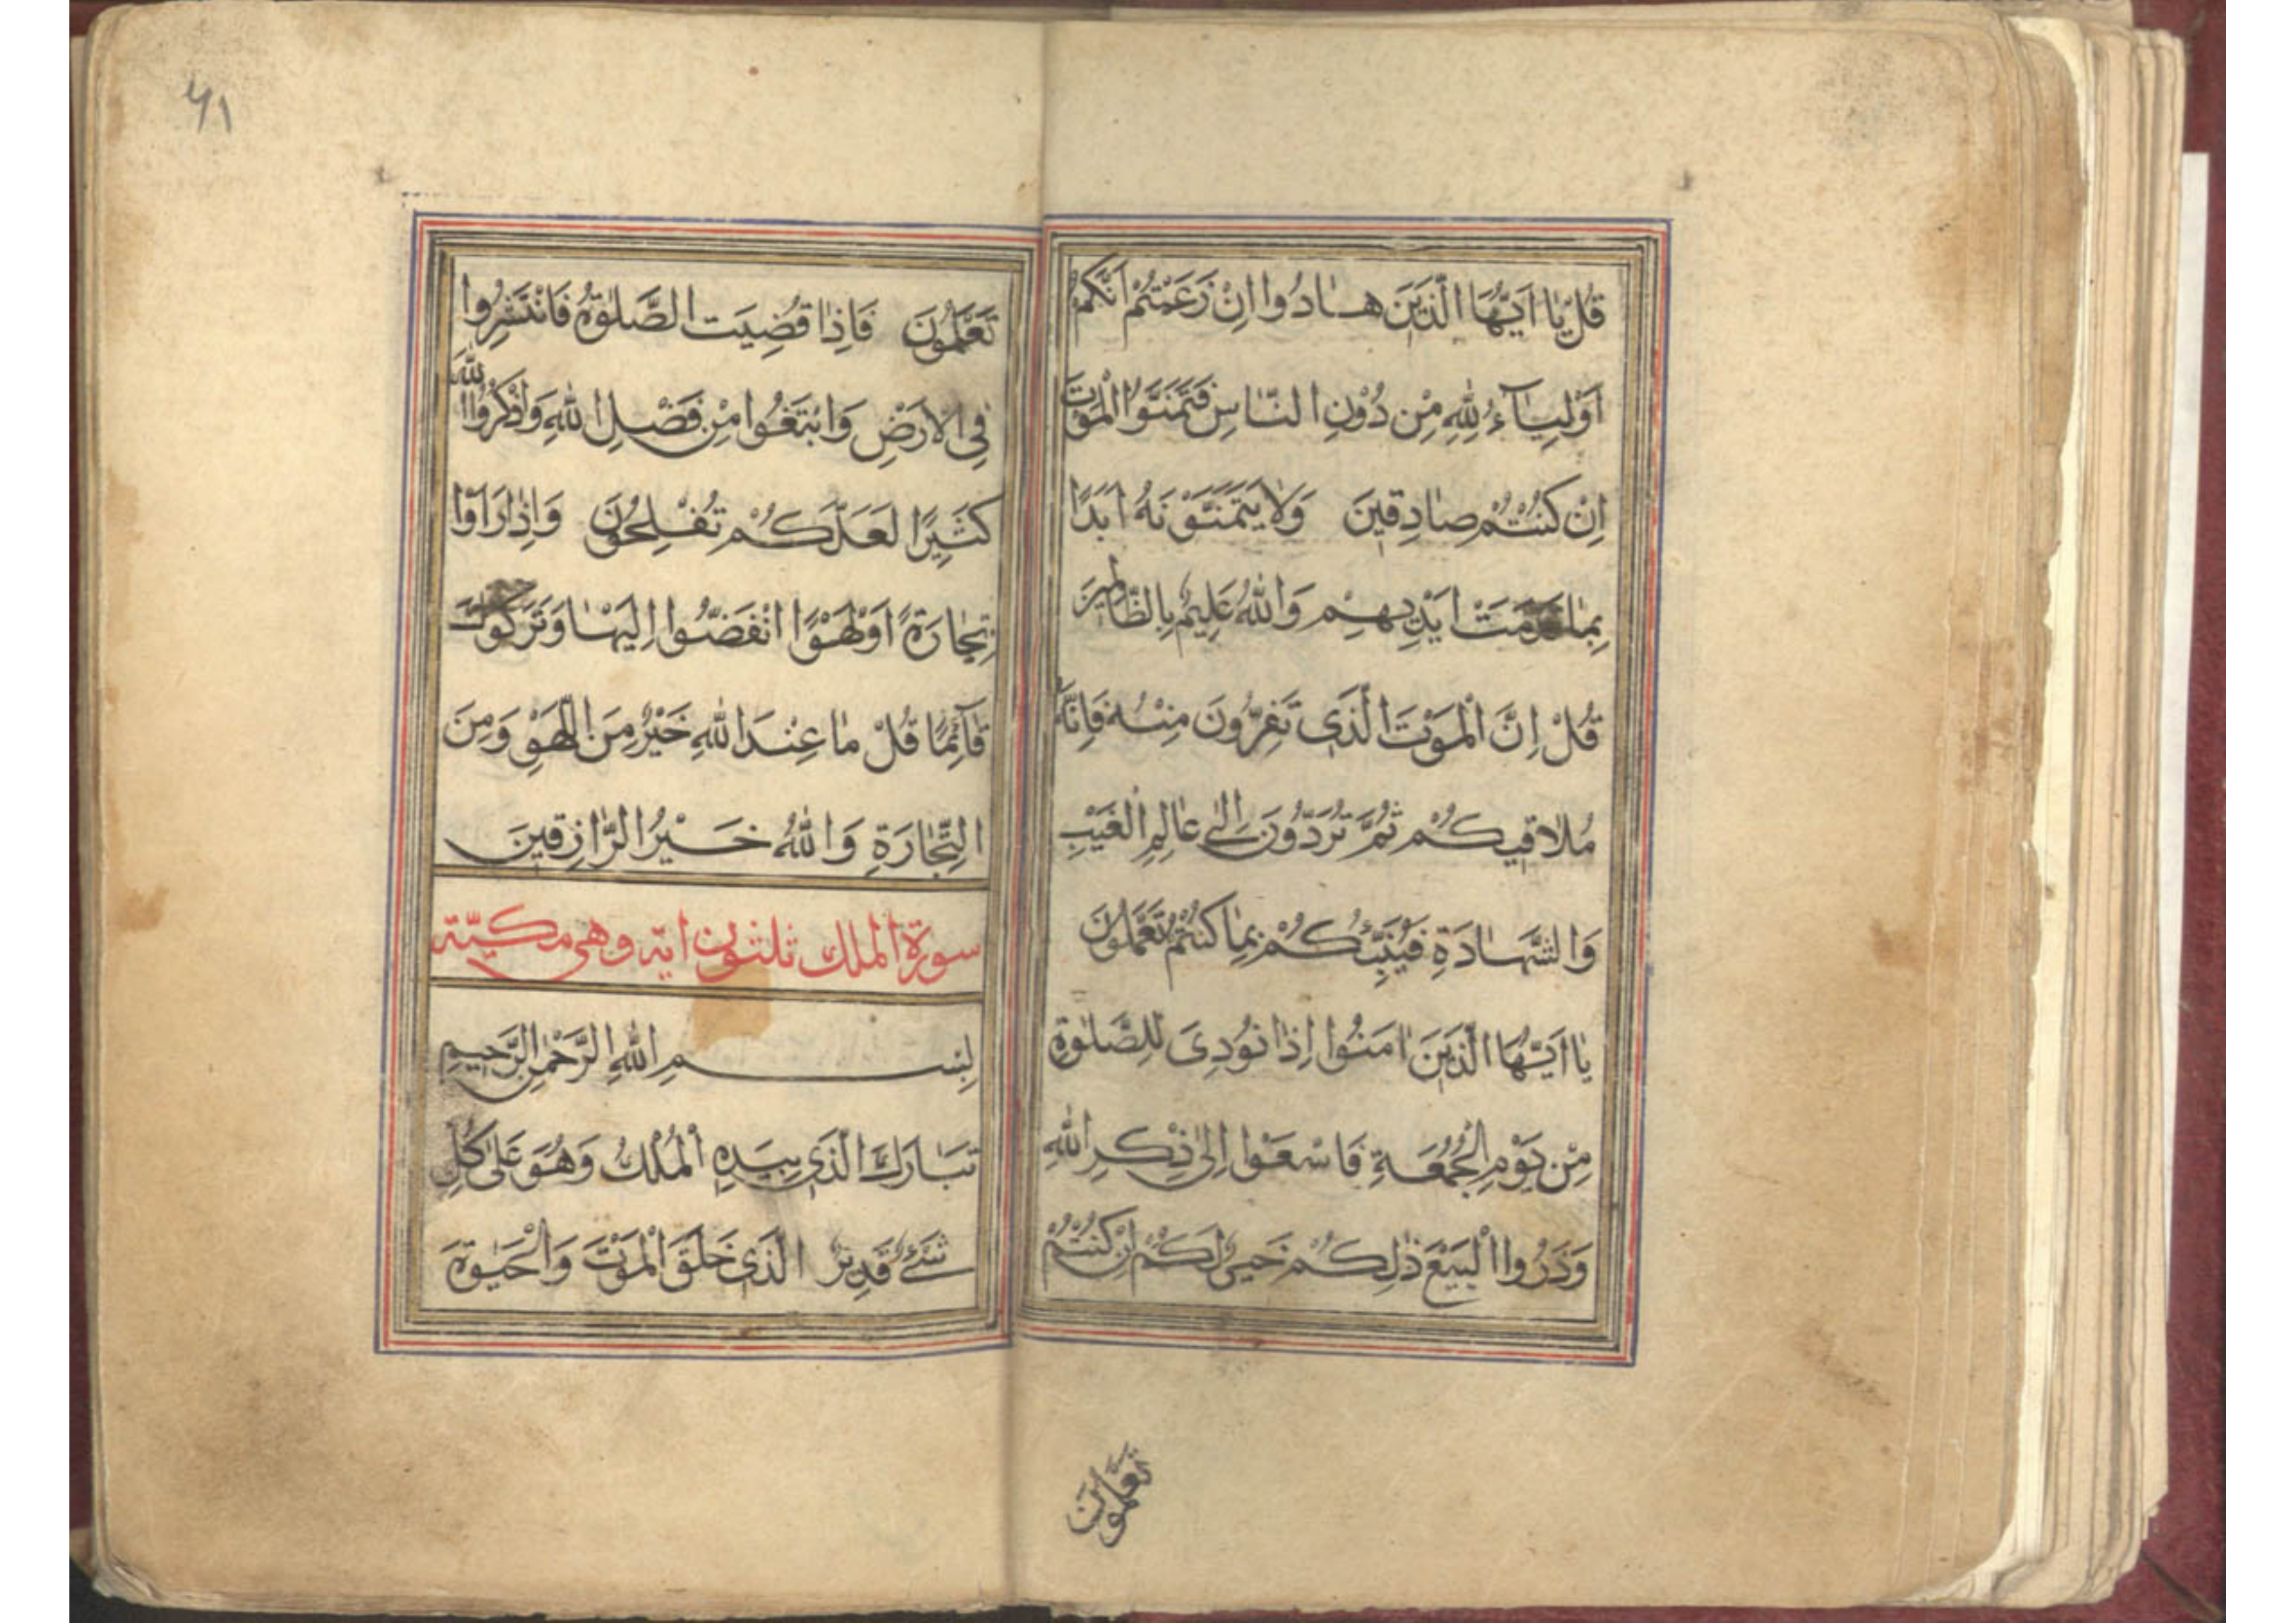 قُلْ يٰا اَيُّهَا الَّذينَ هٰادُوا اِنْ زَعَمْتُمْ اَنَّكُمْ
اَوْلِيٰآءُ لِلّٰهِ مِنْ دُوْنِ النّٰاسِ فَتَمَنَّوُا الْمَوْتَ
اِنْ كُنْتُمْ صٰادِقينَ وَلٰا يَتَمَنَّوْنَهُ اَبَدًا
بِمٰا قَدَّمَتْ اَيْديهِمْ وَاللّٰهُ عَليمٌ بِالظّٰالِمينَ
قُلْ اِنَّ الْمَوْتَ الَّذى تَفِرُّونَ مِنْهُ فَاِنَّهُ
مُلٰاقيكُمْ ثُمَّ تُرَدُّونَ اِلٰى عٰالِمِ الْغَيْبِ
وَالشَّهٰادَةِ فَيُنَبِّئُكُمْ بِمٰا كُنْتُمْ تَعْمَلُونَ
يٰا اَيُّهَا الَّذينَ اٰمَنُوا اِذٰا نُودِىَ لِلصَّلٰوةِ
مِنْ يَوْمِ الْجُمُعَةِ فَاسْعَوْا اِلٰى ذِكْرِ اللّٰهِ
وَذَرُوا الْبَيْعَ ذٰلِكُمْ خَيْرٌ لَكُمْ اِنْ كُنْتُمْ
تعلمون
٦١
تَعْلَمُونَ فَاِذٰا قُضِيَتِ الصَّلٰوةُ فَانْتَشِرُوا
فِى الْاَرْضِ وَابْتَغُوا مِنْ فَضْلِ اللّٰهِ وَاذْكُرُوا اللّٰهَ
كَثيرًا لَعَلَّكُمْ تُفْلِحُونَ وَاِذٰا رَاَوْا
تِجٰارَةً اَوْ لَهْوًا انْفَضُّوا اِلَيْهٰا وَتَرَكُوكَ
قٰآئِمًا قُلْ مٰا عِنْدَ اللّٰهِ خَيْرٌ مِنَ اللَّهْوِ وَمِنَ
التِّجٰارَةِ وَاللّٰهُ خَيْرُ الرّٰازِقينَ
سورة الملك ثلثون ايه وهى مكيّة
بِسْمِ اللّٰهِ الرَّحْمٰنِ الرَّحيمِ
تَبٰارَكَ الَّذى بِيَدِهِ الْمُلْكُ وَهُوَ عَلٰى كُلِّ
شَىْءٍ قَديرٌ الَّذى خَلَقَ الْمَوْتَ وَالْحَيٰوةَ